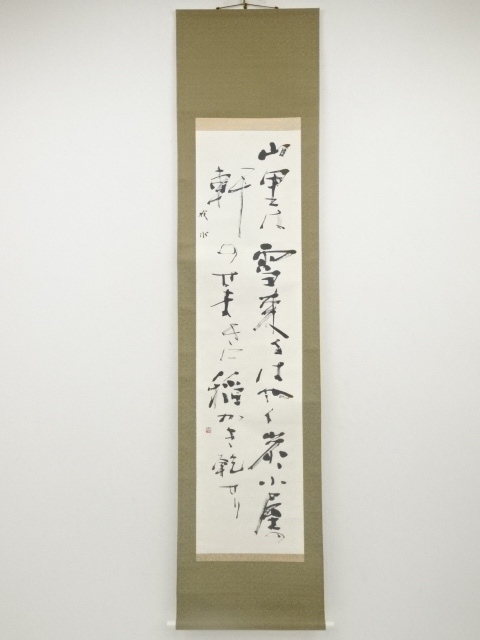 山里は雪来るはやく炭小屋の
軒のせまきに稲かき乾せり